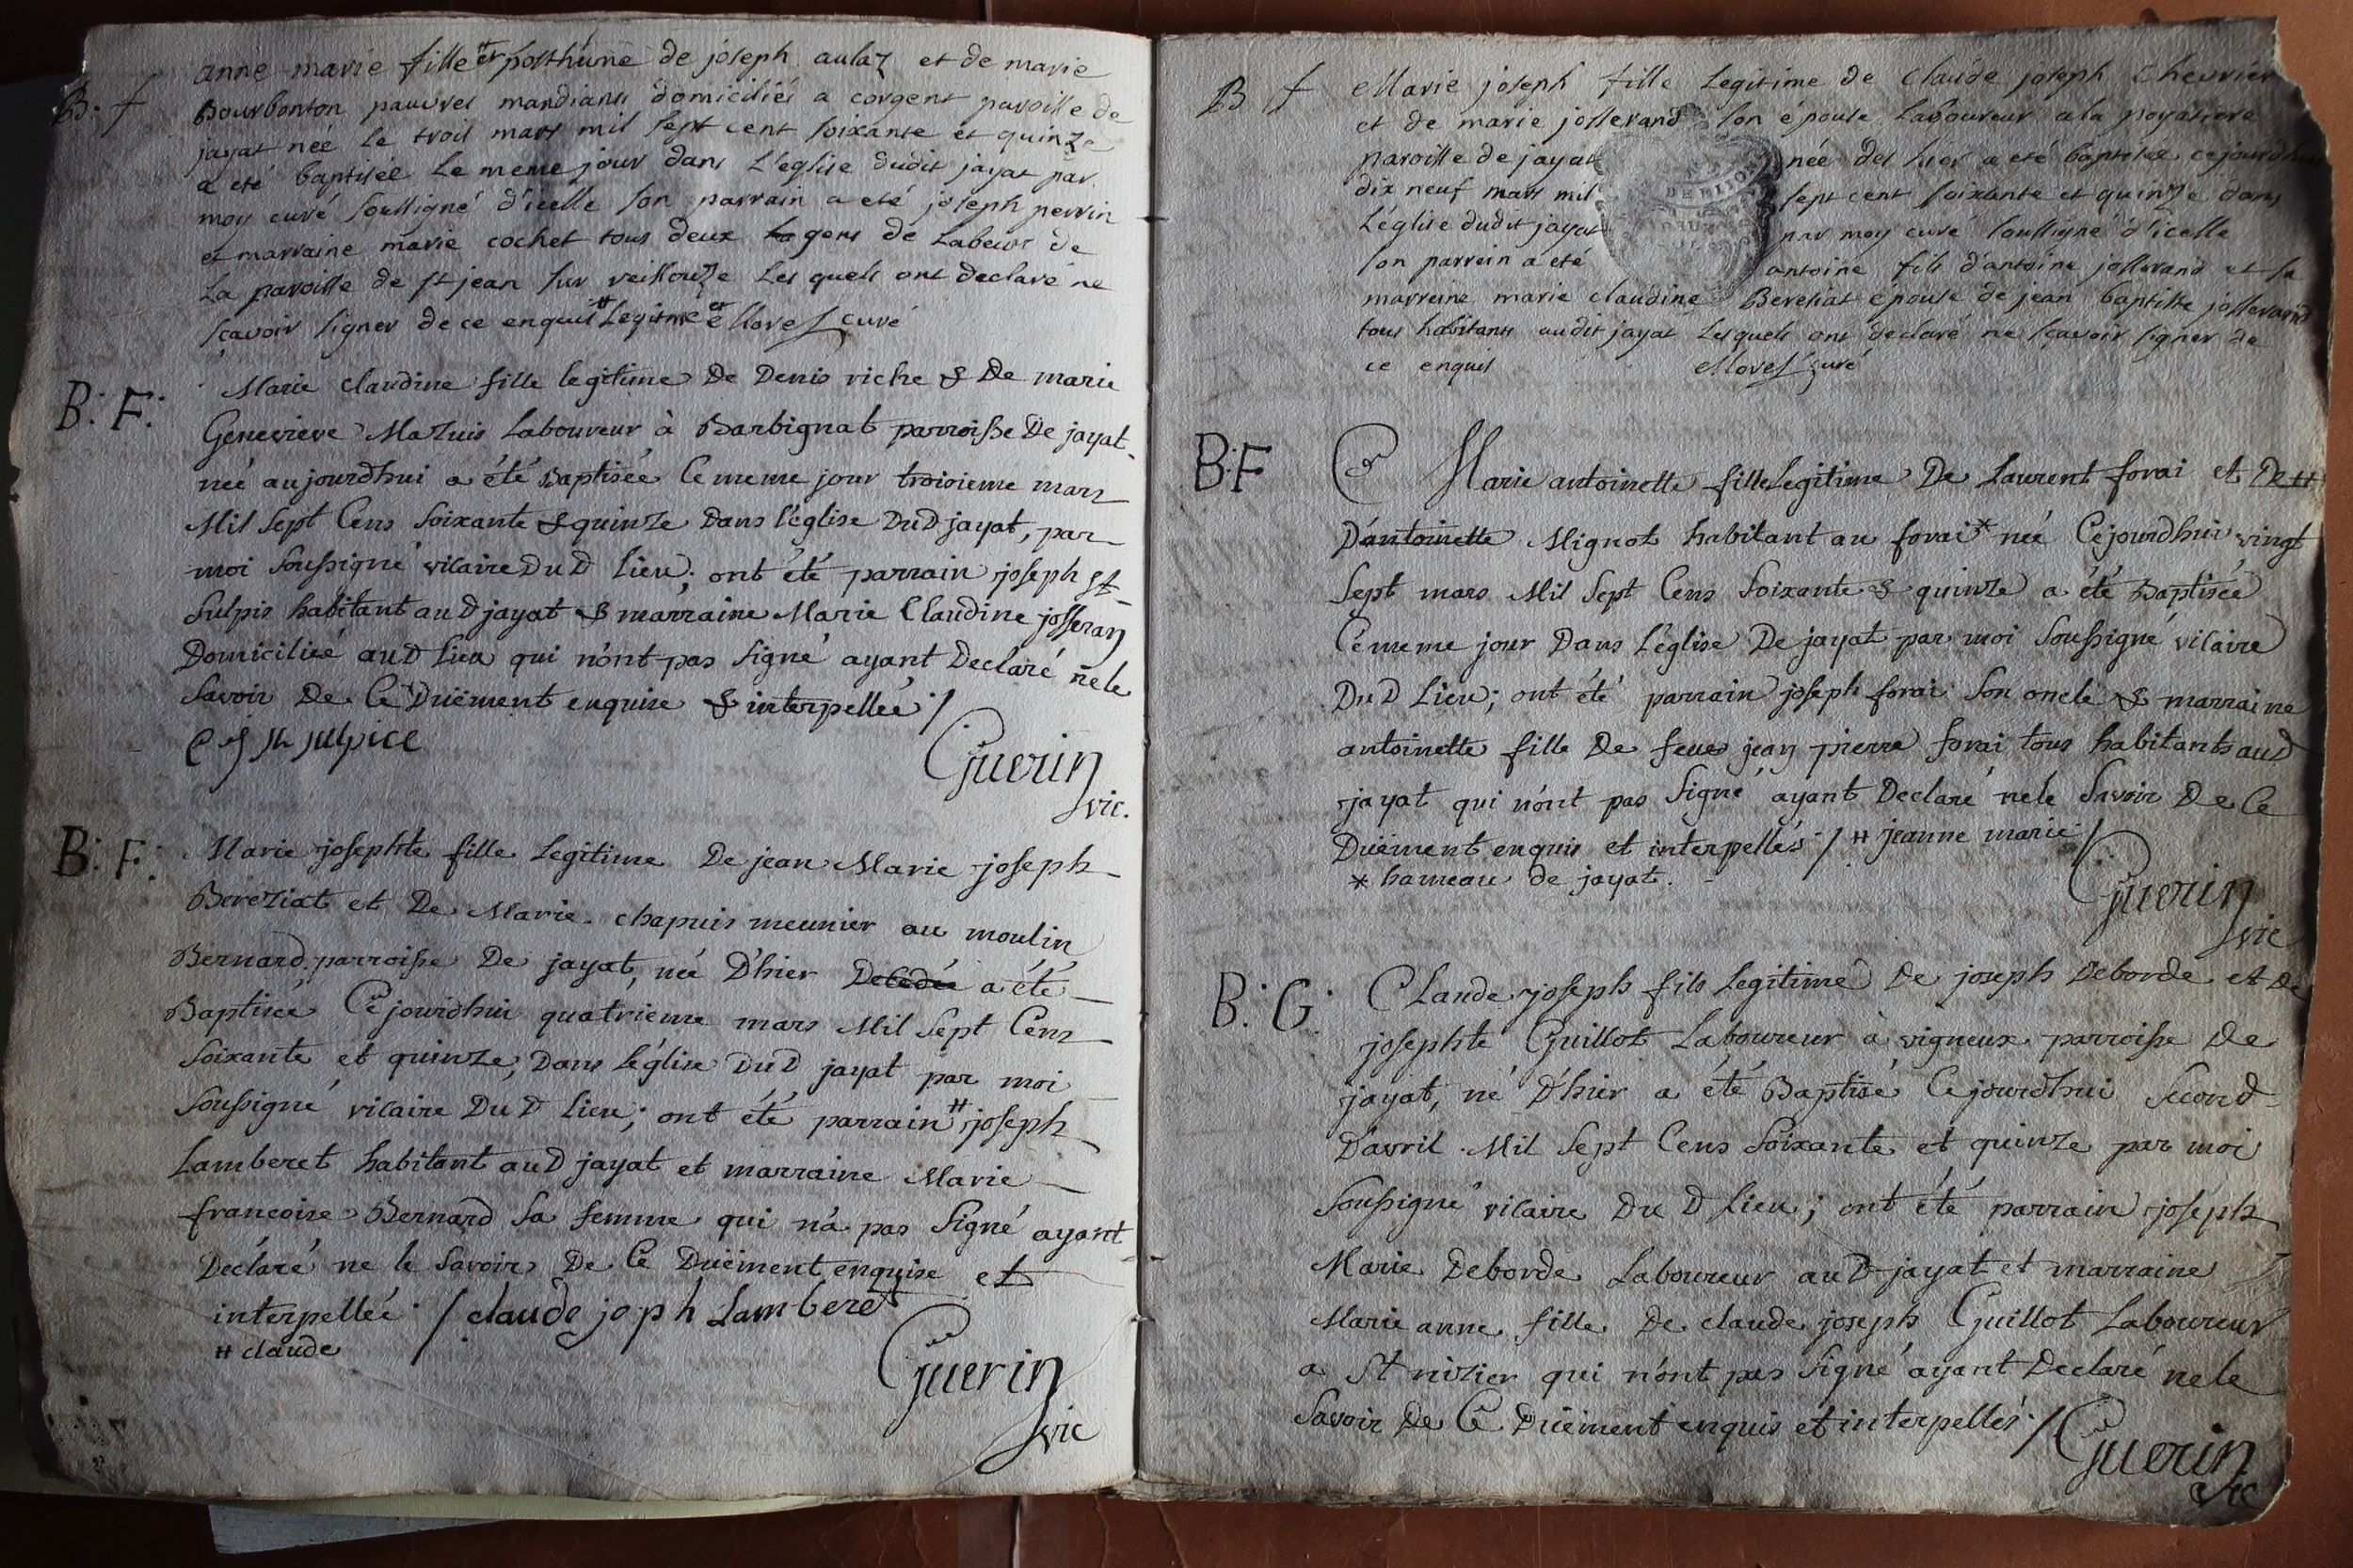 B. f
anne marie fille # posthume de joseph aulaz et de marie
Bourbonton pauvres mandians domiciliés a corgent paroisse de
jayat née le trois mars mil sept cent soixante et quinze
a eté baptisée le meme jour dans l'eglise dudit jayat par
moy curé soussigné d'icelle son parrain a eté joseph perrin
et marraine marie cochet tous deux gens de labeur de
la paroisse de st jean sur veissouze les quels ont declaré ne
sçavoir signer de ce enquis # legitime et Morel curé
B: F:
Marie claudine fille legitime De Denis riche & De marie
Genevieve Mazuis Laboureur à Barbignat parroisse De jayat
née aujourdhui a été Baptisée le meme jour troisieme mars
Mil Sept Cens Soixante & quinze Dans l'église DuD jayat, par
moi Soussigné vicaire DuD lieu; ont été parrain joseph St
Sulpis habitant auD jayat & marraine Marie Claudine josseran
Domiciliée auD lieu qui n'ont pas Signé ayant Declaré ne le
Savoir De Ce Duëment enquise & interpellée /
st sulpice
Guerin
vic.
B: F:
Marie josephte fille legitime De jean Marie joseph
Bereziat et De Marie chapuis meunier au moulin
Bernard parroisse De jayat, née D'hier a été
Baptisée Cejourdhui quatrieme mars Mil Sept Cens
Soixante et quinze, Dans l'église DuD jayat par moi
Soussigné vicaire DuD lieu; ont été parrain # joseph
Lamberet habitant auD jayat et marraine Marie
francoise Bernard Sa femme qui n'a pas Signé ayant
Declaré ne le Savoir De Ce Duëment enquise et
interpellée / claude joph Lamberet
# claude
Guerin
vic
B f
Marie joseph fille legitime de claude joseph chevrier
et de marie josserand son épouse laboureur a la poyatiere
paroisse de jayat née des hier a eté baptisée cejourdhui
dix neuf mars mil sept cent soixante et quinze dans
l'église dudit jayat par moy curé soussigné d'icelle
son parrein a eté antoine fils d'antoine josserand et sa
marreine marie claudine Beresiat épouse de jean baptiste josserand
tous habitants audit jayat lesquels ont declaré ne sçavoir signer de
ce enquis Morel curé
B:F
Marie antoinette fille Legitime De Laurent forai et De #
D'antoinette Mignot habitant au forai * née Cejourdhui vingt
Sept mars Mil Sept Cens Soixante & quinze a été Baptisée
Ce meme jour Dans l'église De jayat par moi Soussigné vicaire
DuD Lieu; ont été parrain joseph forai Son oncle & marraine
antoinette fille De feue jean pierre forai tous habitants auD
jayat qui n'ont pas Signé ayant Declaré ne le Savoir De Ce
Duëment enquis et interpellés / # jeanne marie /
* hameau de jayat.
Guerin
vic
B: G:
Claude joseph fils legitime De joseph Deborde et De
josephte Guillot Laboureur à vigneux parroisse De
jayat, né D'hier a été Baptisé Cejourdhui Second
D'avril Mil Sept Cens Soixante et quinze par moi
Soussigné vicaire Du D lieu; ont été parrain joseph
Marie Deborde Laboureur auD jayat et marraine
Marie anne fille De claude joseph Guillot Laboureur
a St nizier qui n'ont pas Signé ayant Declaré ne le
Savoir De Ce Duëment enquis et interpellés /
Guerin
vic